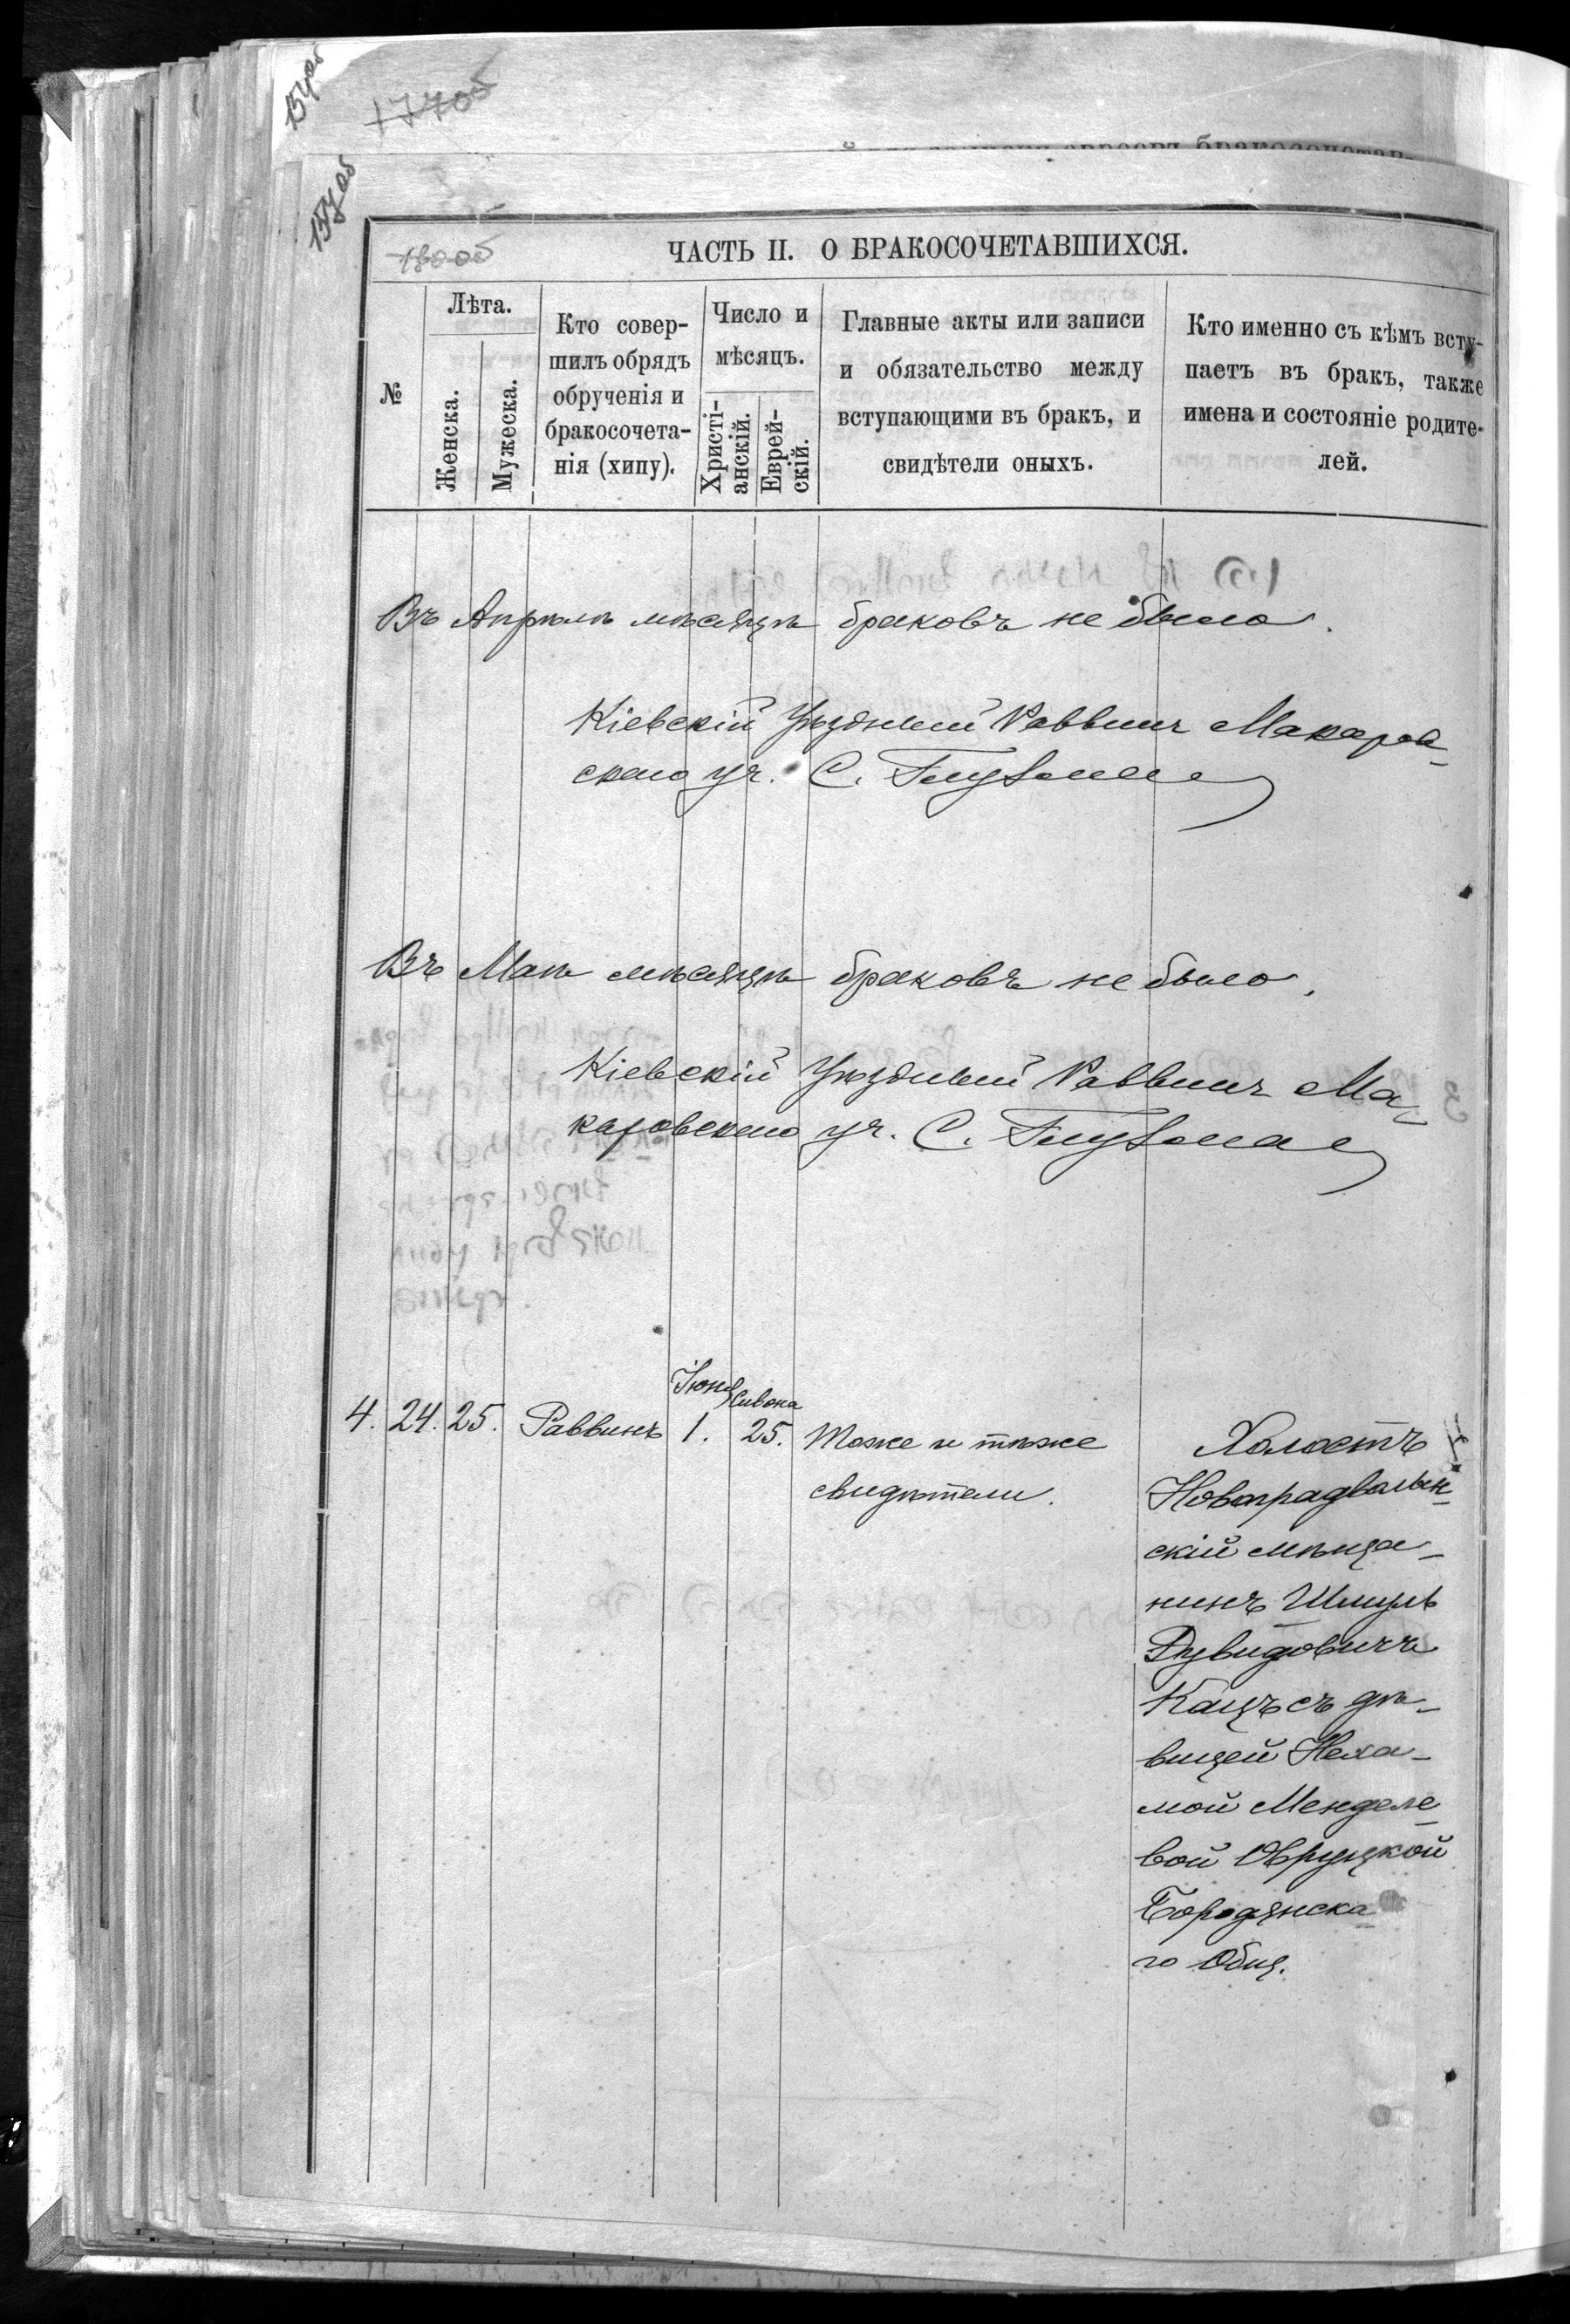 ЧАСТЬ II. О БРАКОСОЧЕТАВШИХСЯ.
№
Лѣта.
Женска.
Мужеска.
Кто совер-
шилъ обрядъ
обрученія и
бракосочета-
нія (хипу).
Число и
мѣсяцъ.
Христі-
анскій.
Еврей-
скій.
Главные акты или записи
и обязательство между
вступающими въ бракъ, и
свидѣтели оныхъ.
Кто именно съ кѣмъ всту-
паетъ въ бракъ, также
имена и состояніе родите-
лей.
Въ Апрѣлѣ мѣсяцѣ браковъ не было.
Кіевскій Уѣздный Раввинъ Макаров-
скаго уч. С.
Въ Маѣ мѣсяцѣ браковъ не было.
Кіевскій Уѣздный Раввинъ Ма-
каровскаго уч. С.
4. 24. 25. Раввинъ Іюня 1. Сивона 25. Тоже и тѣже
свидѣтели.
Холостъ
Новоградволын-
скій мѣща-
нинъ Шмуль
Дувидовичъ
Кацъ съ дѣ-
вицей Неха-
мой Менделе-
вой Овруцкой
Бородянска-
го Общ.